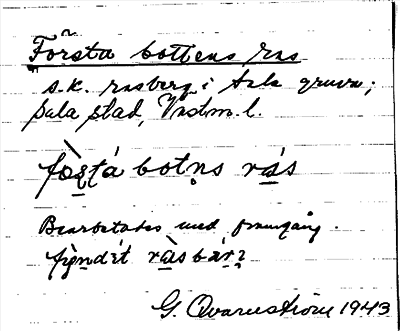 Första bottens ras
s.k. rasberg i Sala gruva;
Sala stad, Västm. l.
fö̀ṣṭá botn̥s rás
Bearbetades med framgång.
fýndit ràsbár
G. Qvarnström 1943